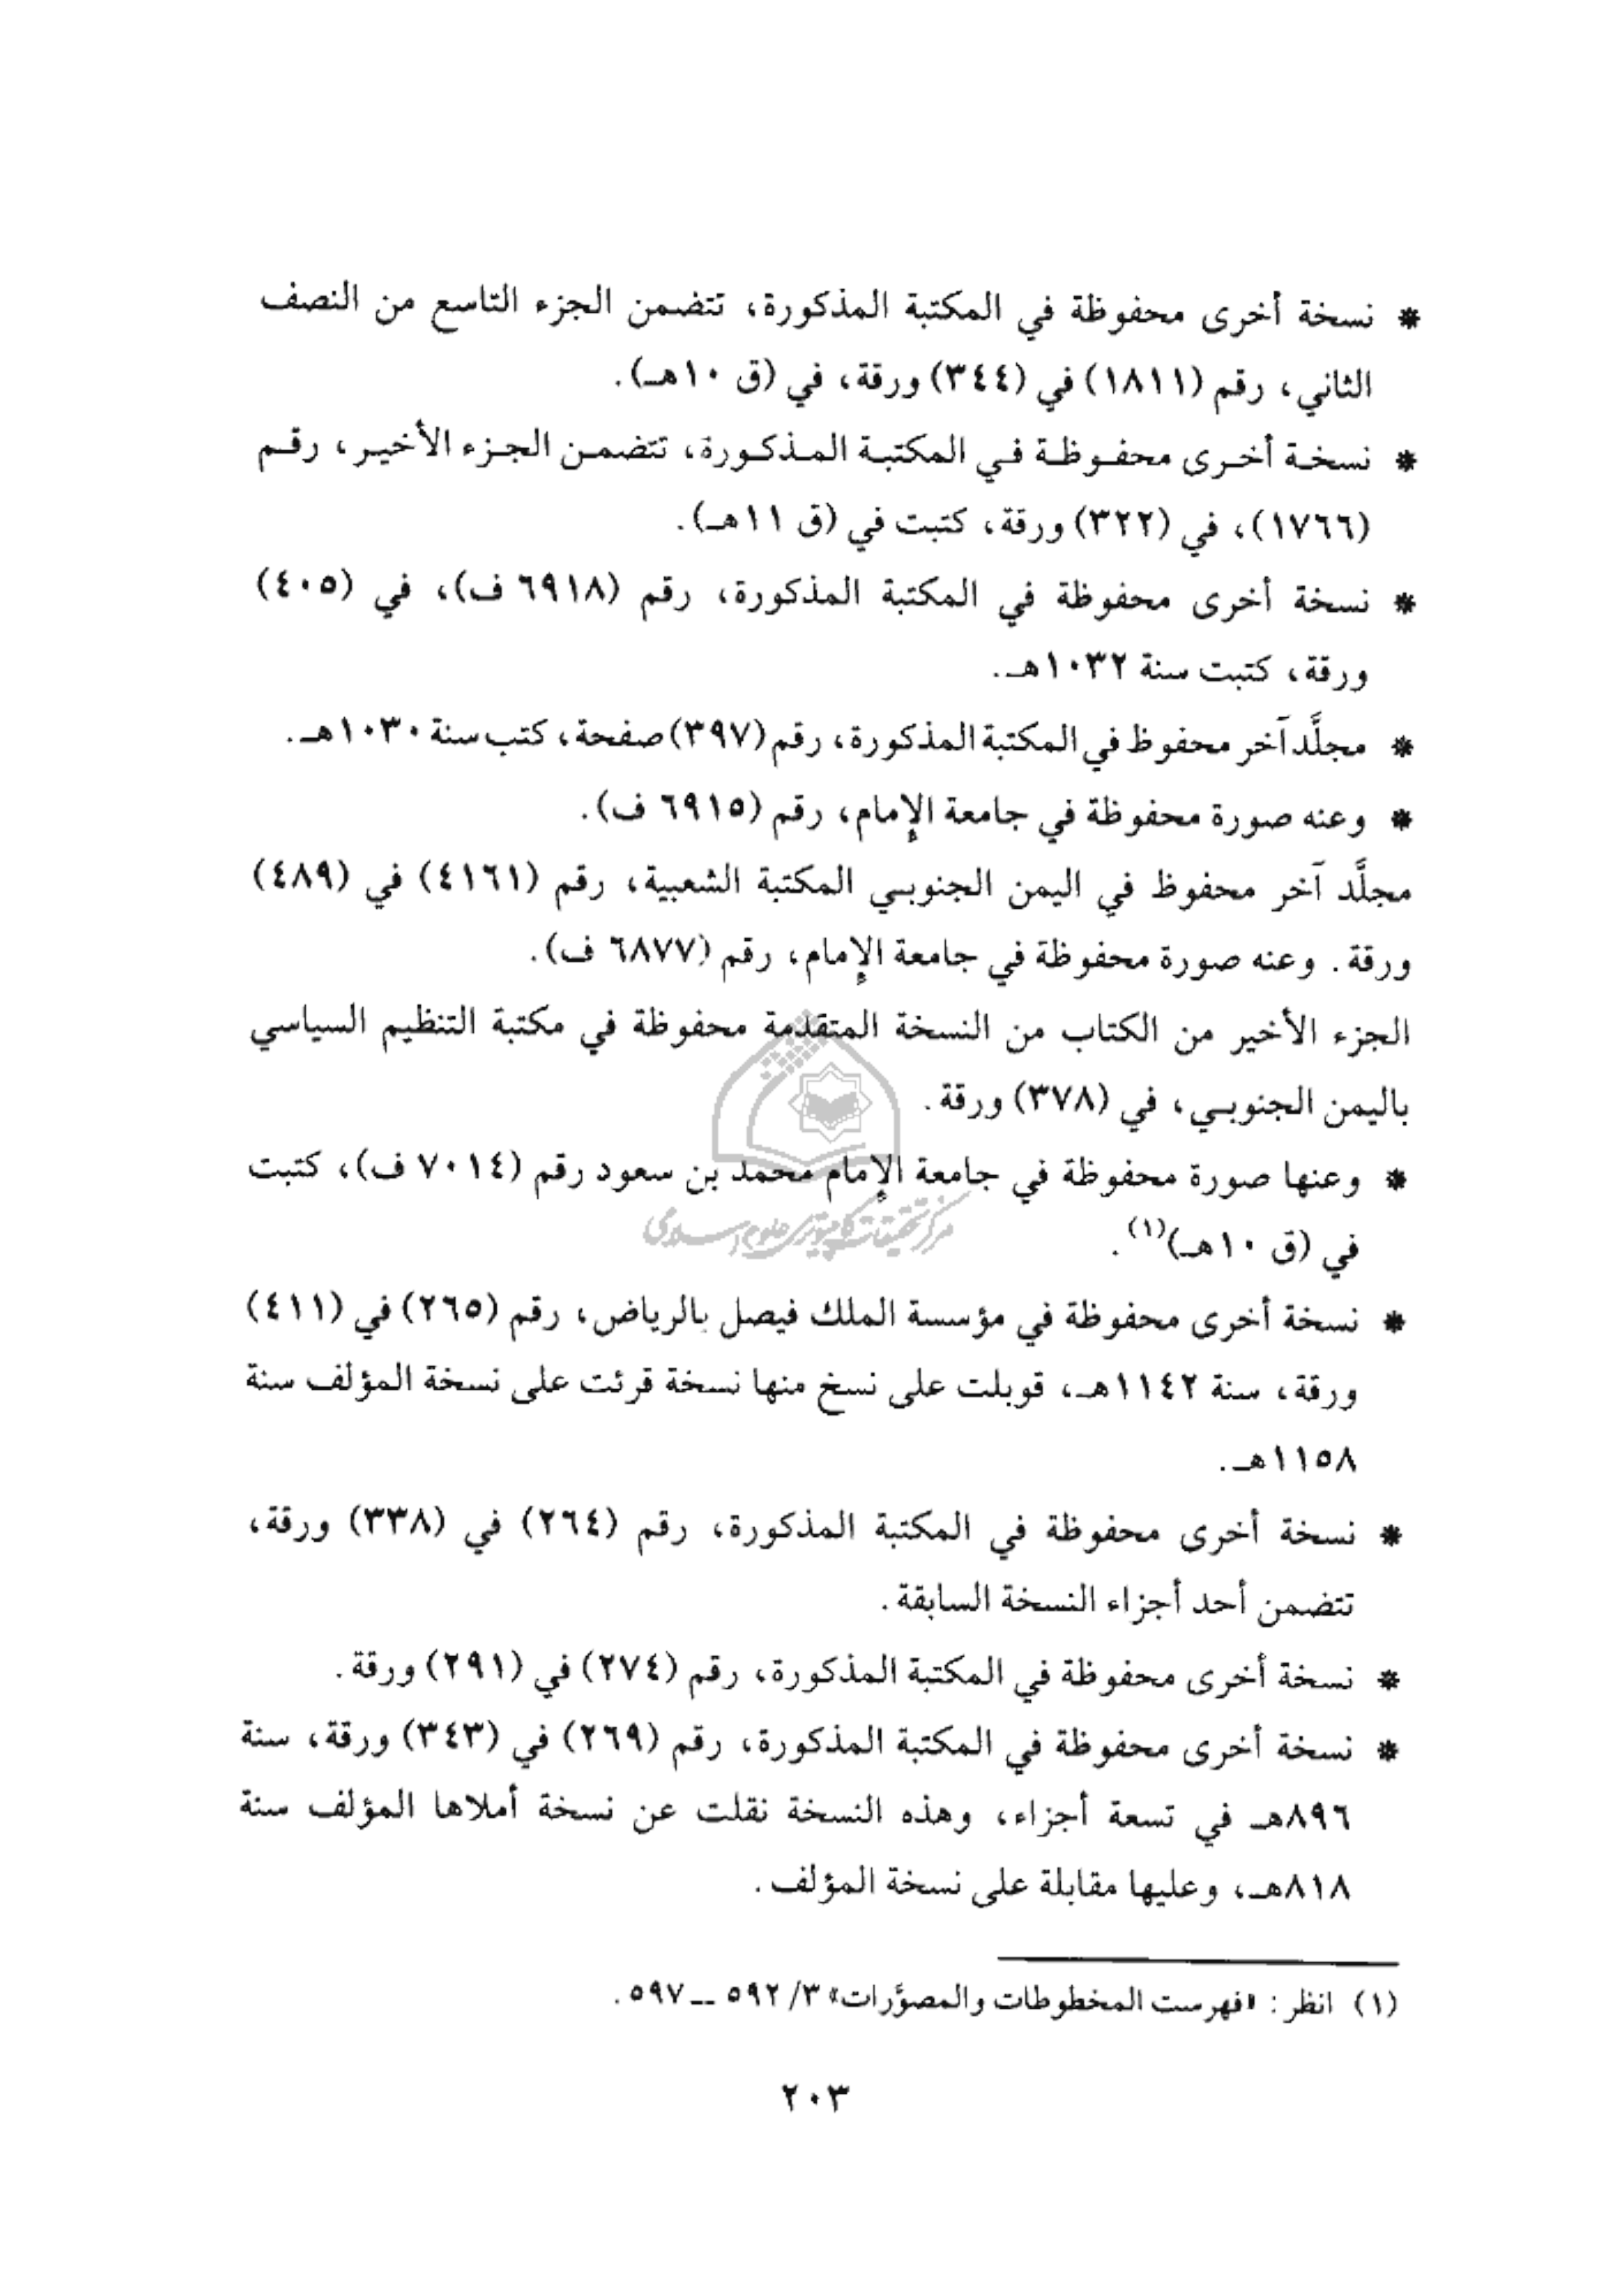 * نسخة أخرى محفوظة في المكتبة المذكورة، تتضمن الجزء التاسع من النصف
الثاني، رقم (١٨١١) في (٣٤٤) ورقة، في (ق ١٠هـ).
* نسخة أخرى محفوظة في المكتبة المذكورة، تتضمن الجزء الأخير، رقم
(١٧٦٦)، في (٣٢٢) ورقة، كتبت في (ق ١١هـ).
* نسخة أخرى محفوظة في المكتبة المذكورة، رقم (٦٩١٨ ف)، في (٤٠٥)
ورقة، كتبت سنة ١٠٣٢هـ.
* مجلَّد آخر محفوظ في المكتبة المذكورة، رقم (٣٩٧) صفحة، كتب سنة ١٠٣٠هـ.
* وعنه صورة محفوظة في جامعة الإمام، رقم (٦٩١٥ ف).
مجلَّد آخر محفوظ في اليمن الجنوبي المكتبة الشعبية، رقم (٤١٦١) في (٤٨٩)
ورقة. وعنه صورة محفوظة في جامعة الإمام، رقم (٦٨٧٧ ف).
الجزء الأخير من الكتاب من النسخة المتقدمة محفوظة في مكتبة التنظيم السياسي
باليمن الجنوبي، في (٣٧٨) ورقة.
* وعنها صورة محفوظة في جامعة الإمام محمد بن سعود رقم (٧٠١٤ ف)، كتبت
في (ق ١٠هـ)(١).
مركز تحقيقات كامپيوتری علوم اسلامی
* نسخة أخرى محفوظة في مؤسسة الملك فيصل بالرياض، رقم (٢٦٥) في (٤١١)
ورقة، سنة ١١٤٢هـ، قوبلت على نسخ منها نسخة قرئت على نسخة المؤلف سنة
١١٥٨هـ.
* نسخة أخرى محفوظة في المكتبة المذكورة، رقم (٢٦٤) في (٣٣٨) ورقة،
تتضمن أحد أجزاء النسخة السابقة.
* نسخة أخرى محفوظة في المكتبة المذكورة، رقم (٢٧٤) في (٢٩١) ورقة.
* نسخة أخرى محفوظة في المكتبة المذكورة، رقم (٢٦٩) في (٣٤٣) ورقة، سنة
٨٩٦هـ في تسعة أجزاء، وهذه النسخة نقلت عن نسخة أملاها المؤلف سنة
٨١٨هـ، وعليها مقابلة على نسخة المؤلف.
(١) انظر: «فهرست المخطوطات والمصوَّرات» ٣/ ٥٩٢ ــ ٥٩٧.
٢٠٣